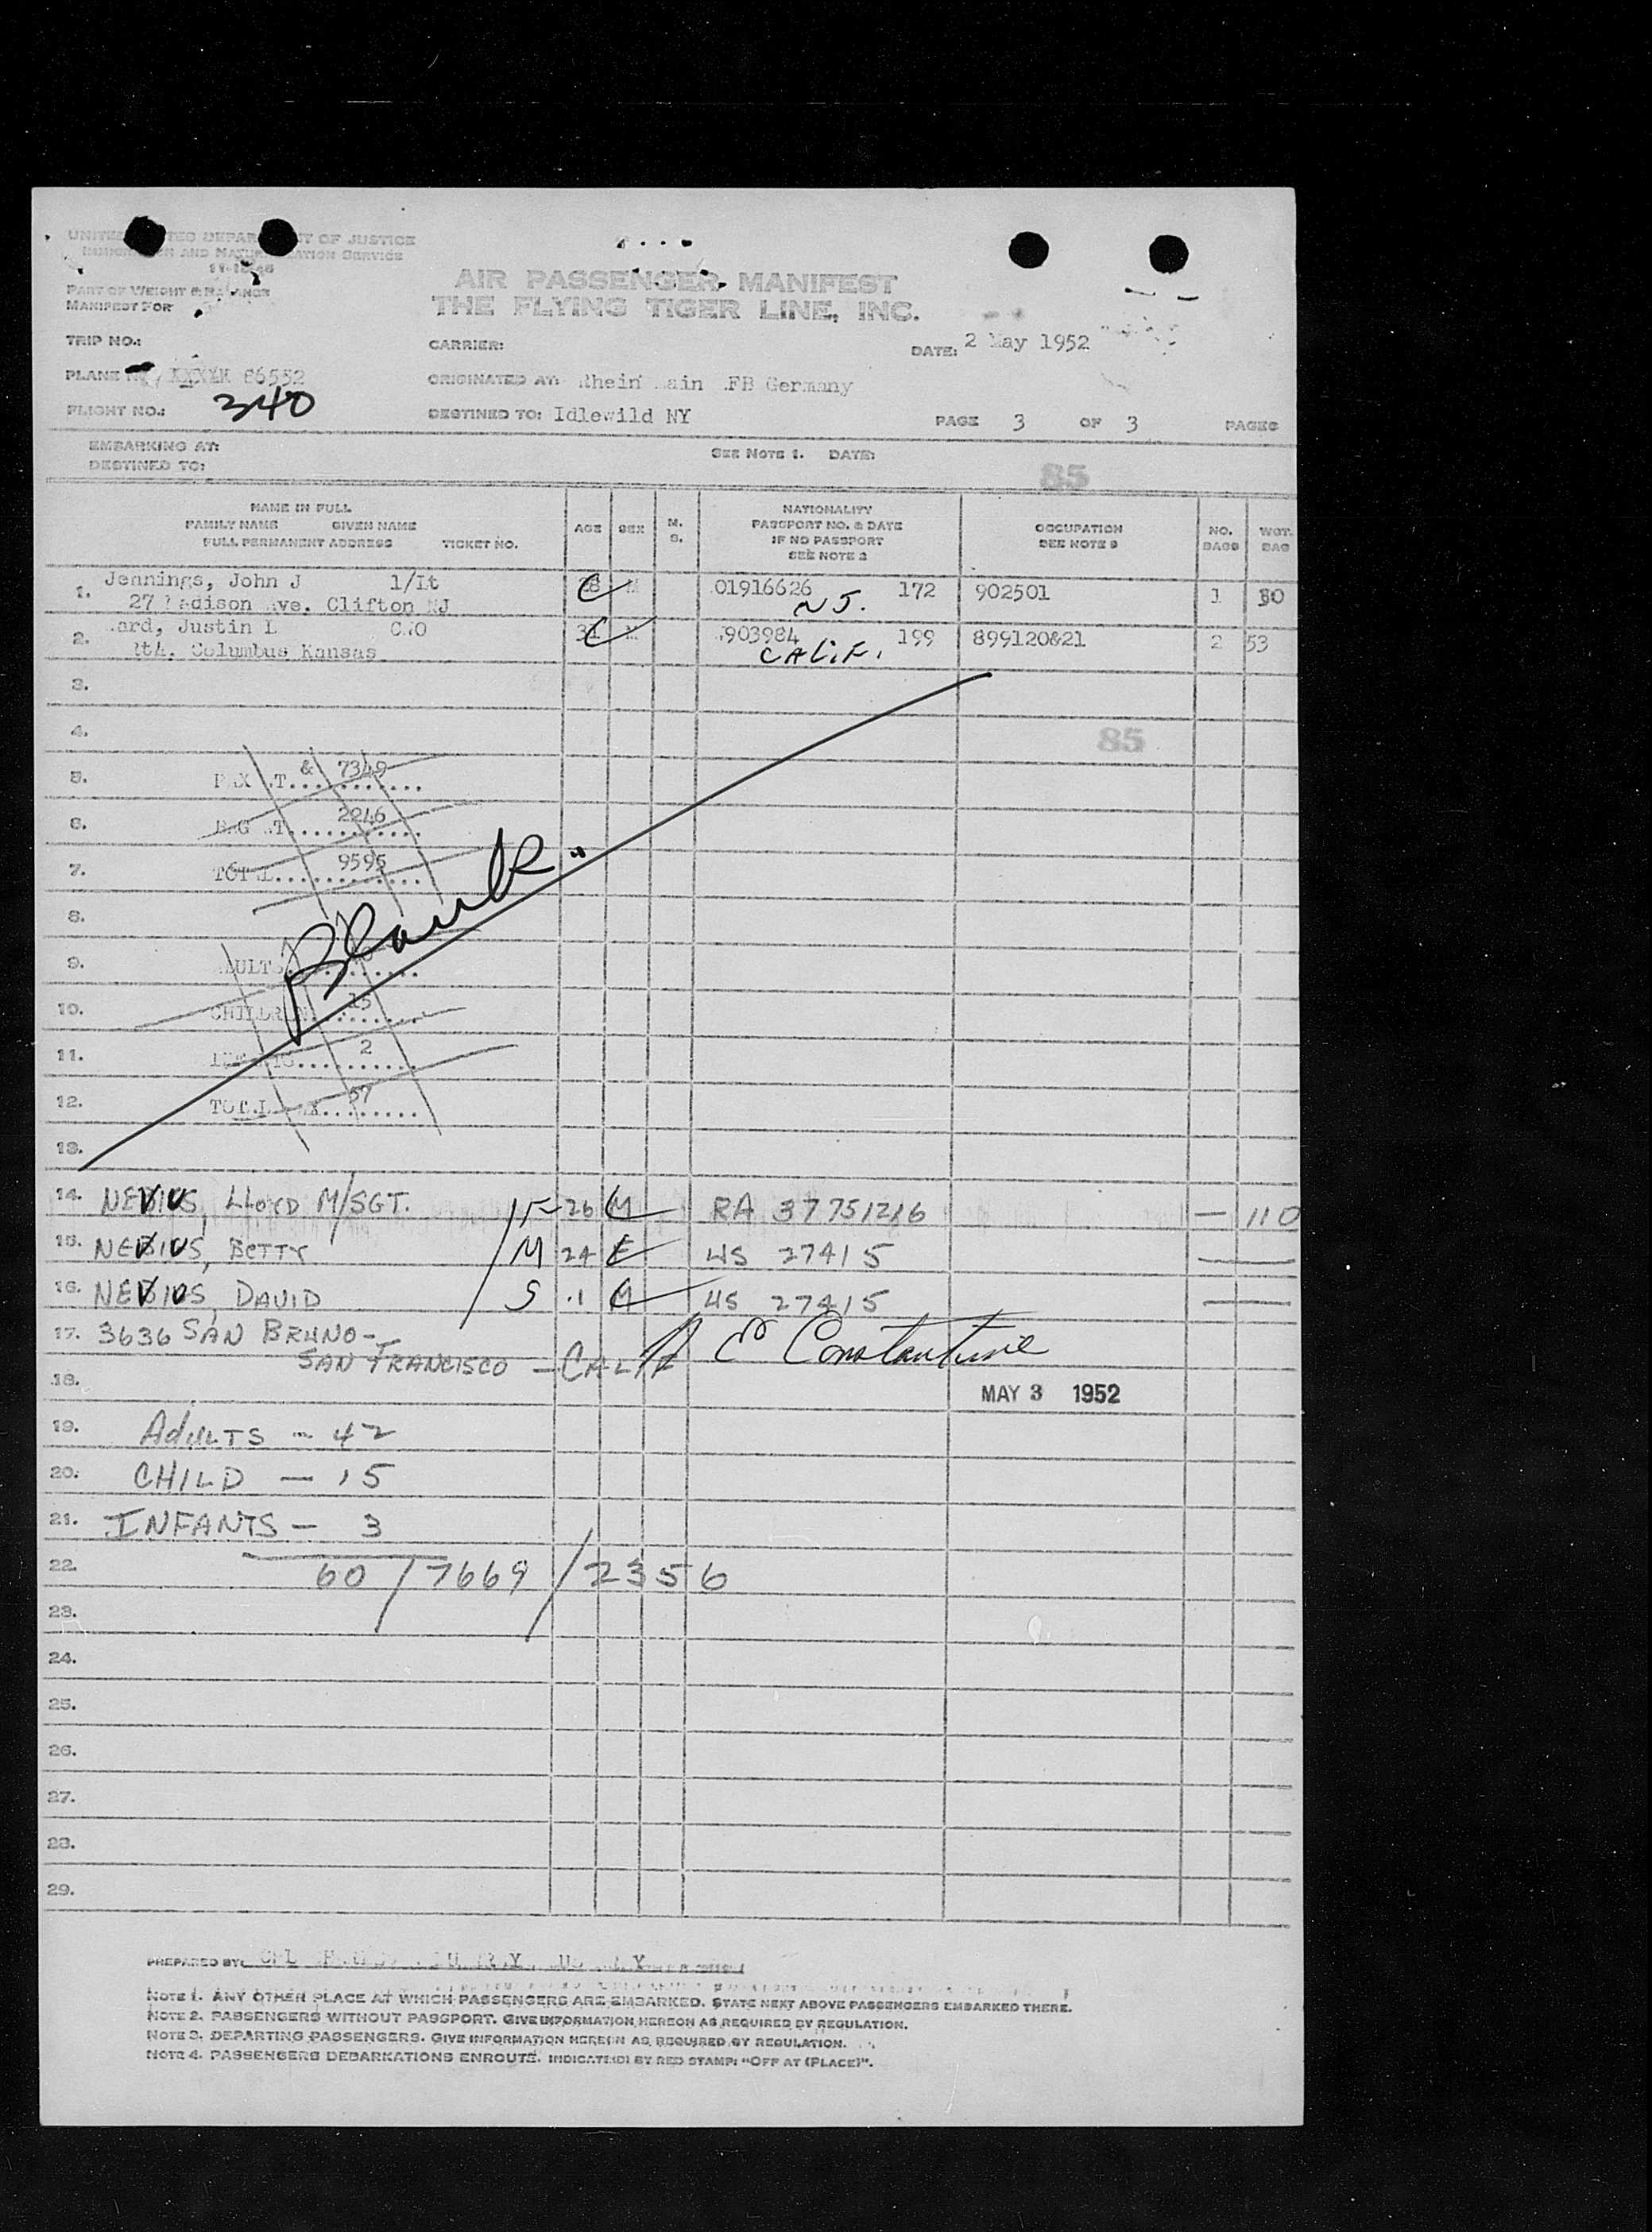 DEPARTMENT OF JUSTICE
IMMIGRATION AND NATURALIZATION SERVICE
PART OF WEIGHT & BALANCE
MANIFEST FOR
AIR PASSENGER MANIFEST
THE FLYING TIGER LINE, INC.
TRIP NO.:
CARRIER:
DATE: 2 May 1952
PLANE 86552
ORIGINATED AT: Rhein Main AFB Germany
FLIGHT NO.: 340
DESTINED TO: Idlewild NY
PAGE 3 OF 3 PAGES
EMBARKING AT:
SEE NOTE 1. DATE:
DESTINED TO:
85
NAME IN FULL
FAMILY NAME GIVEN NAME
FULL PERMANENT ADDRESS TICKET NO.
AGE
SEX
M.
S.
NATIONALITY
PASSPORT NO. & DATE
IF NO PASSPORT
SEE NOTE 2
OCCUPATION
SEE NOTE 3
NO.
BAGS
WGT.
BAG
1. Jennings, John J 1/Lt M 01916626 172 902501 1
27 Madison Ave. Clifton NJ N J.
2. Justin L CWO 31 M 903984 199 899120&21 2 53
Rt4. Columbus Kansas CALIF.
3.
4.
85
5. PAX WT. & 7349
6. BAG WT. 2246
7. TOTAL 9595
Blank
8.
9. ADULTS
10. CHILDREN 15
11. INFANTS 2
12. TOTAL PAX 57
13.
14. NEVIUS, LLOYD M/SGT. F 26 M RA 37751216 — 110
15. NEVIUS, BETTY M 24 F US 27415 —
16. NEVIUS, DAVID S .1 M US 27415 —
17. 3636 SAN BRUNO -
SAN FRANCISCO - CALIF
E Constantine
18.
MAY 3 1952
19. ADULTS - 42
20. CHILD - 15
21. INFANTS - 3
22. 60 / 7669 / 2356
23.
24.
25.
26.
27.
28.
29.
PREPARED BY: CPL
NOTE 1. ANY OTHER PLACE AT WHICH PASSENGERS ARE EMBARKED. STATE NEXT ABOVE PASSENGERS EMBARKED THERE.
NOTE 2. PASSENGERS WITHOUT PASSPORT. GIVE INFORMATION HEREON AS REQUIRED BY REGULATION.
NOTE 3. DEPARTING PASSENGERS. GIVE INFORMATION HEREON AS REQUIRED BY REGULATION.
NOTE 4. PASSENGERS DEBARKATIONS ENROUTE. INDICATE(D) BY RED STAMP: "OFF AT (PLACE)".